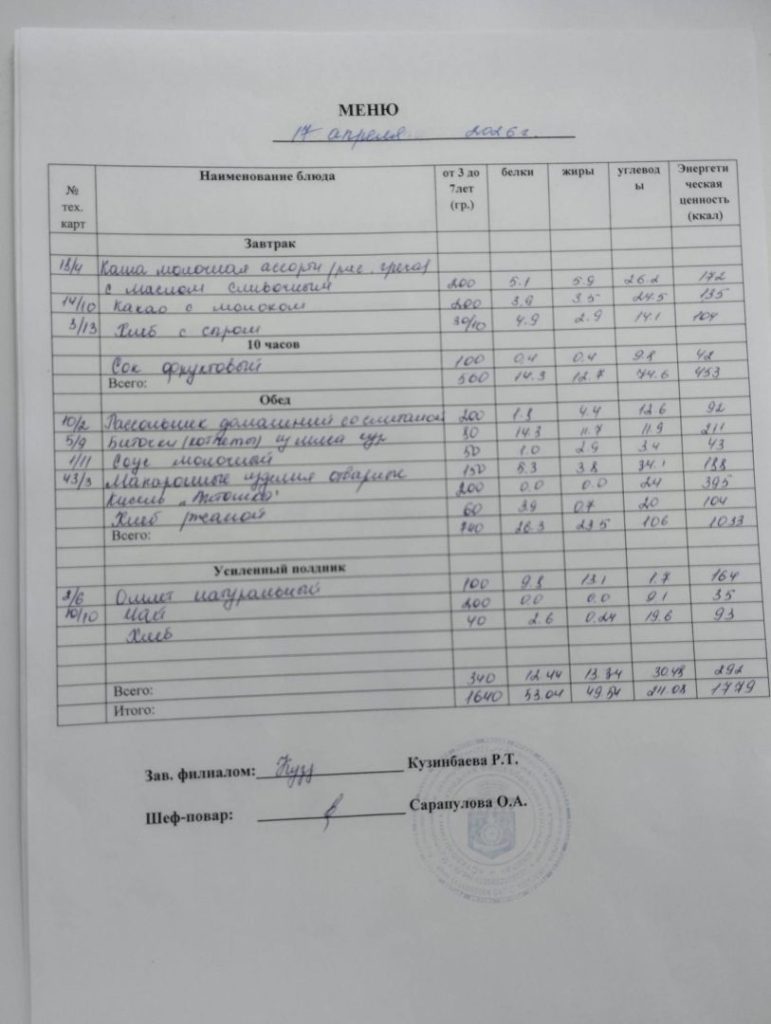 МЕНЮ
17 апреля 2026 г.
№ тех. карт Наименование блюда от 3 до 7лет (гр.) белки жиры углеводы Энергетическая ценность (ккал)
Завтрак
18/4 Каша молочная ассорти (рис, греча)
с маслом сливочным 200 5.1 5.9 26.2 172
14/10 Какао с молоком 200 3.9 3.5 24.5 135
3/13 Хлеб с сыром 30/10 4.9 2.9 14.1 104
10 часов
Сок фруктовый 100 0.4 0.4 9.8 42
Всего: 500 14.3 12.7 74.6 453
Обед
10/2 Рассольник домашний со сметаной 200 1.8 4.4 12.6 92
5/9 Биточки (котлеты) из мяса кур 80 14.3 11.7 11.9 211
1/11 Соус молочный 50 1.0 2.9 3.4 43
43/3 Макаронные изделия отварные 150 5.3 3.8 34.1 188
Кисель „Витошка" 200 0.0 0.0 24 395
Хлеб ржаной 60 3.9 0.7 20 104
Всего: 740 26.3 23.5 106 1033
Усиленный полдник
2/6 Омлет натуральный 100 9.8 13.1 1.7 164
10/10 Чай 200 0.0 0.0 9.1 35
Хлеб 40 2.6 0.24 19.6 93
Всего: 340 12.44 13.34 30.48 292
Итого: 1640 53.04 49.54 211.08 1779
Зав. филиалом: Кузинбаева Р.Т.
Шеф-повар: Сарапулова О.А.